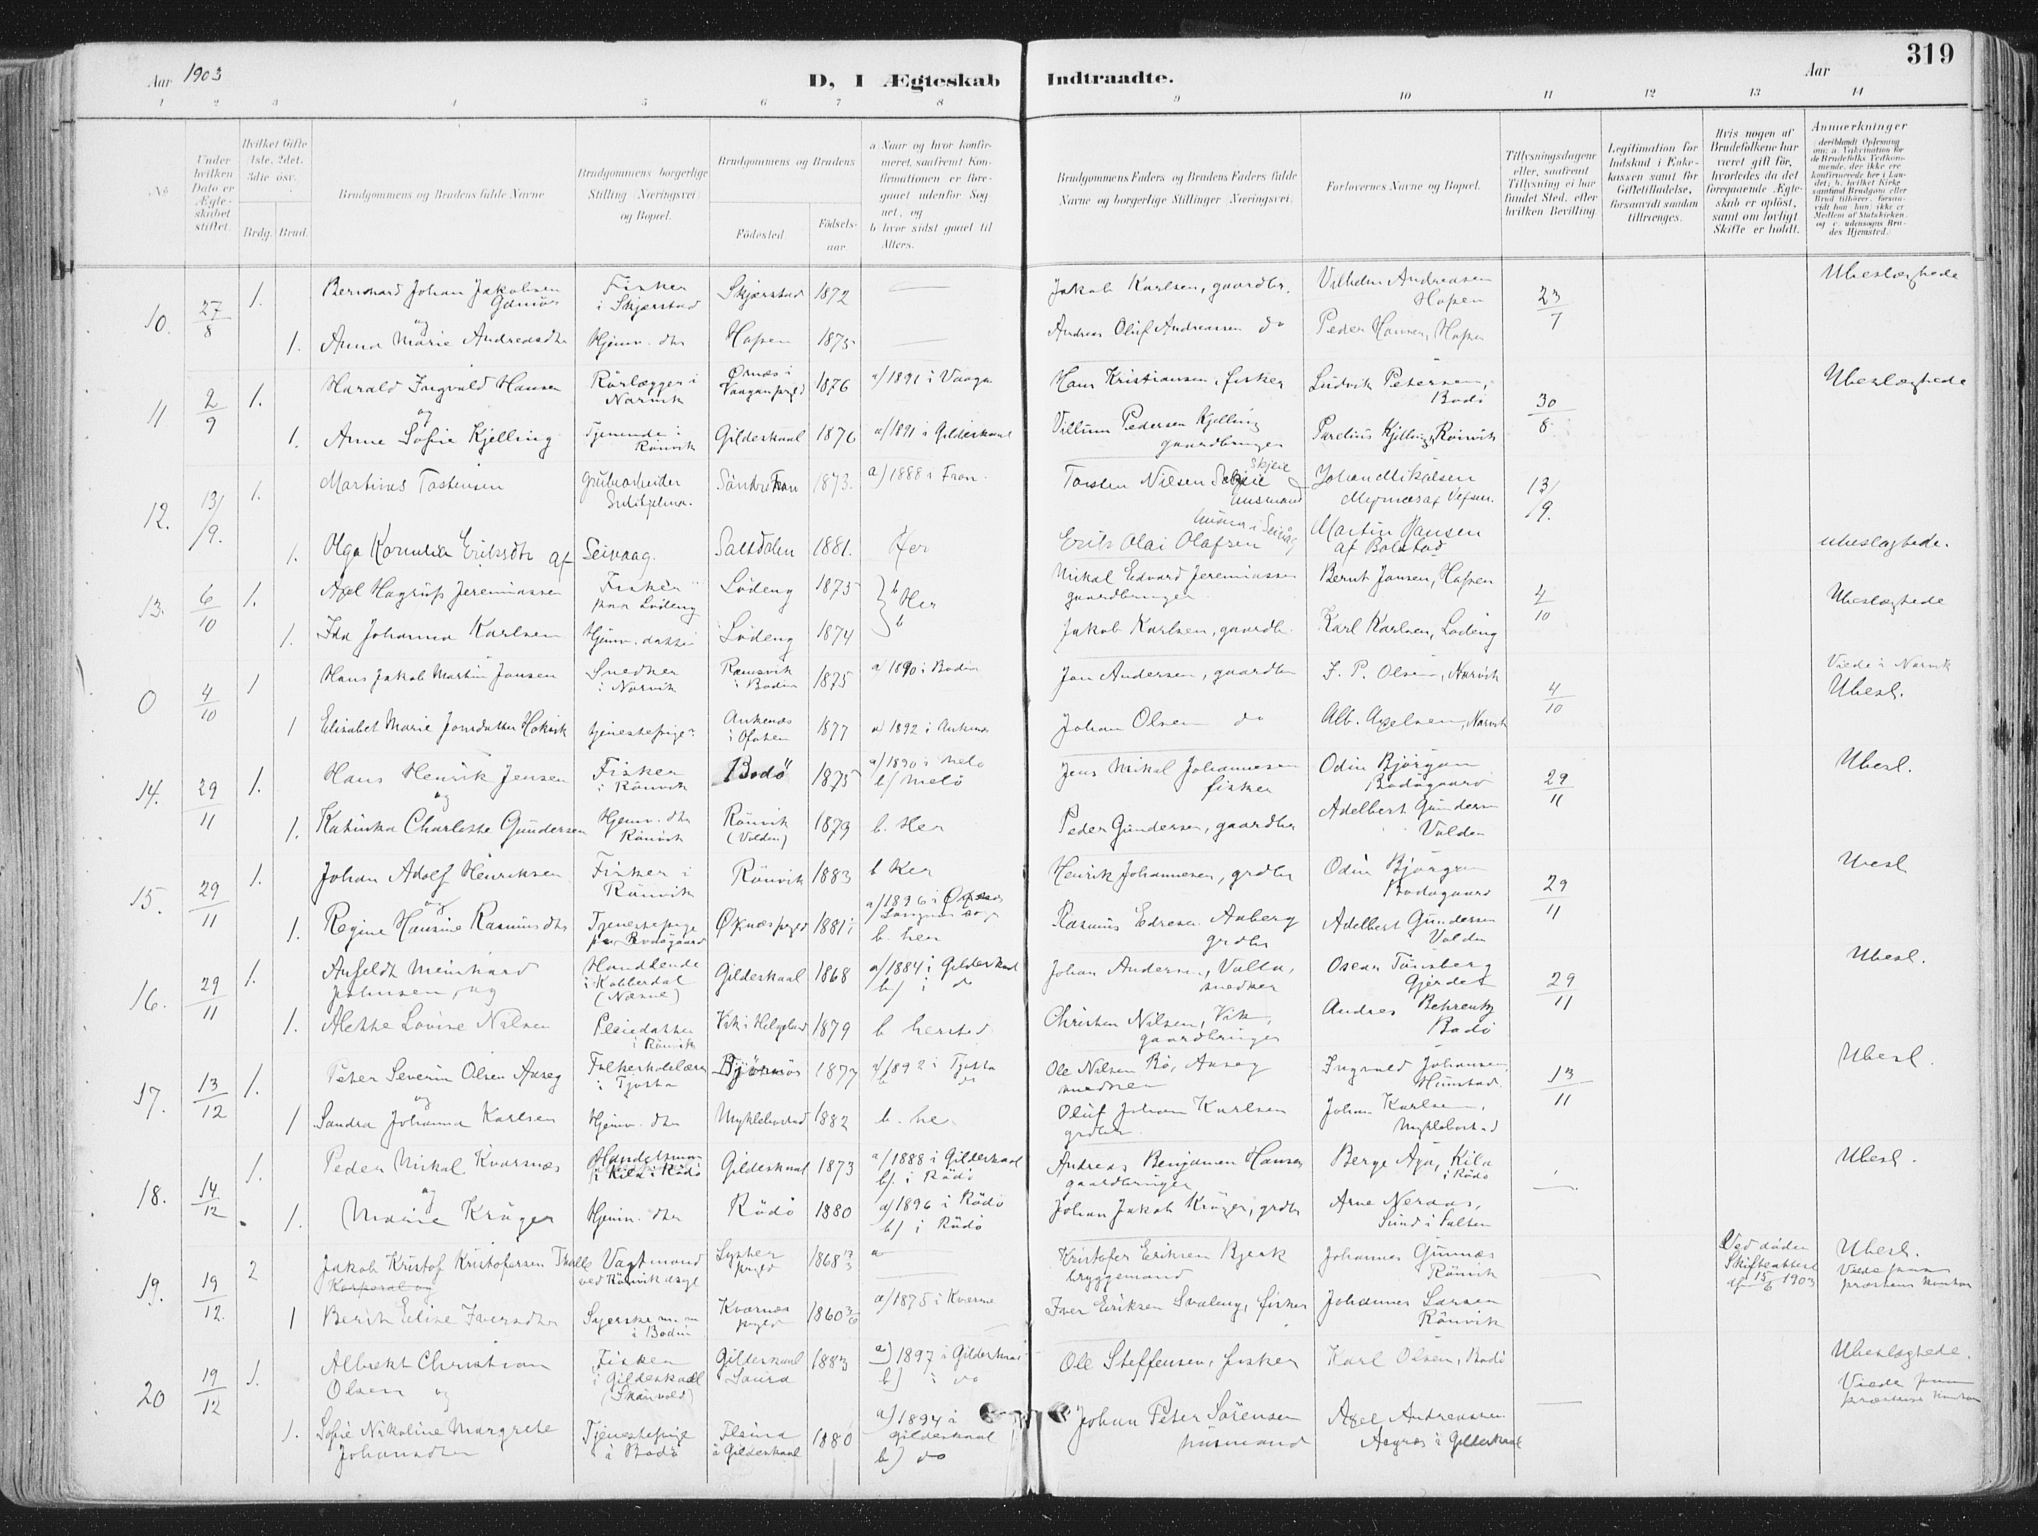 319
Aar 1903
D, I Ægteskab Indtraadte.
Aar
1 2 3 4 5 6 7 8 9 10 11 12 13 14
No
Under hvilken Dato er Ægteskabet stiftet.
Hvilket Gifte 1ste, 2det, 3die osv.
Brdg. Brud.
Brudgommens og Brudens fulde Navne
Brudgommens borgerlige Stilling Næringsvei og Bopæl.
Brudgommens og Brudens
Fødested.
Fødselsaar.
a Naar og hvor konfirmeret, saafremt Konfirmationen er foregaaet udenfor Sognet, og
b hvor sidst gaaet til Alters.
Brudgommens Faders og Brudens Faders fulde Navne og borgerlige Stillinger Næringsvei.
Forlovernes Navne og Bopæl.
Tillysningsdagene eller, saafremt Tillysning ei har fundet Sted, efter hvilken Bevilling
Legitimation for Indskud i Enkekassen samt for Giftetilladelse, forsaavidt saadan tiltrænges.
Hvis nogen af Brudefolkene har været gift før, hvorledes da det foregaaende Ægteskab er opløst, samt om lovligt Skifte er holdt.
Anmerkninger
10. 27/8 1. Bernhard Johan Jakobsen
Fisker i Skjerstad Skjærstad 1872 Jakob Karlsen, gaardbr. Vilhelm Andreasen Hopen 23/7 Ubeslægtede
og
1. Anna Marie Andreasdtr Hjemv. dtr Hopen 1875 Andreas Oluf Andreassen do Peder Hansen, Hopen
11 2/9 1. Harald Ingvald Hansen Rörlægger i Narvik Ørnæs i Vaagan prgld 1876 a/1891 i Vaagan Hans Kristiansen, fisker Ludvik Petersen, Bodö 30/8 Ubeslægtede
og
1. Anne Sofie Kjelling Tjenende i Rönvik Gildeskaal 1876 a/1891 i Gildeskaal Villum Pedersen Kjelling gaardbruger Parelius Kjelling, Rönvik
12. 13/9. 1. Martinus Tostensen grubearbeider Söndre Fron 1873. a/1888 i Fron. Torsten Nilsen Skjeie husmand Johan Mikalsen af Vefsen. 13/9.
1. Olga Kornelia Eriksdtr af Seivaag. Saltdalen 1881. Her Erik Olai Olafsen Martin Hansen af Bolstad ubeslægtede.
13. 6/10 1. Axel Hagrup Jeremiassen Fisker paa Löding Löding 1875 b Her Mikal Edvard Jeremiassen gaardbruger Bernt Jansen, Hopen 4/10 Ubeslægtede
1. Ida Johanna Karlsen Hjemv. datter Löding 1874 b Jakob Karlsen, gaardbr. Karl Karlsen, Löding
0 4/10 1 Hans Jakob Martin Jansen Snedker i Narvik Ramsvik i Bodin 1875 a/1890 i Bodin Jon Andersen, gaardbr F. P. Olsen, Narvik 4/10 Viede i Narvik Ubesl.
1 Elisabet Marie Jonsdatter Hakvik tjenestepige Ankenæs i Ofoten 1877 a/1892 i Ankenæs Johan Olsen do Alb. Axelsen, Narvik
14. 29/11 1. Hans Henrik Jensen Fisker i Rönvik Bodö 1875 a/1890 i Melö b/Melö Jens Mikal Johannesen fisker Odin Björgan Bodögaard 29/11 Ubesl.
og
1. Katinka Charlotte Gundersen Hjemv. dtr Rönvik Rönvik (Volden) 1879 b. Her Peder Gundersen, gaardbr Adelbert Gundersen Volden
15. 29/11 1. Johan Adolf Henriksen Fisker i Rönvik Rönvik 1883 b Her Henrik Johannesen, grdbr Odin Björgan Bodøgaard 29/11 Ubesl
og
1. Regine Hansine Rasmusdtr Tjenestepige paa Bodögaard Øksnæs prgld 1881 a/1896 i Øksnæs b. her Rasmus Edresen Aaberg grdbr Adelbert Gundersen Volden
16. 29/11 1. Anfeldt Meinhard Johnsen, og Handlende i Kobberdal (Næsne) Gildeskaal 1868 a/1884 i Gildeskaal b/ i do Johan Andersen, Valla, snedker Oscar Tönsberg Gjerdet 29/11 Ubesl.
1. Alette Lovise Nilsen Pleiedatter i Rönvik Vik i Helgeland 1879 b hersted Christen Nilsen, Vik, gaardbruger Andreas Behrentz Bodö
17. 13/12 1. Peter Severin Olsen Aaseg Folkeskolelærer i Tjøtta 1877 a/1892 i Tjotta b do Ole Nilsen Bö, Aaseg snedker Ingvald Johansen, Hunstad 13/11 Ubesl.
og
1 Sandra Johanna Karlsen Hjemv. dtr Myklebostad 1882 b. her Oluf Johan Karlsen grdbr. Johan Karlsen, Myklebostad
18. 14/12 1. Peder Mikal Kvarsnes Handelsmann i Kila i Rödö Gildeskaal 1873 a/1888 i Gildeskaal b/. i Rödö Andreas Benjamin Hansen gaardbruger Berge Aga, Kila i Rödö Ubesl.
og
1. Marie Krüger Hjemv. dtr Rödö 1880 a/1896 i Rödö b/ i Rödö Johan Jakob Krüger, grdbr Arne Neraas, Sund i Salten
19. 19/12. 2 Jakob Kristof Kristofersen Vagtmand ved Rönvik Asyl Lyster prgld 1868 a Kristofer Eriksen Bjerk bryggemand Johannes Gumnæs Rönvik Ved döden Skifteattest af 15/6 1903 Ubesl. Viede paa præstens kontor
1 Berit Eline Iversdtr Syerske i Bodin Kvernes prgld 1860 a/1875 i Kverne Iver Eriksen Svaleng, fisker Johannes Larsen Rönvik
20 19/12 1. Albrekt Christian Olsen og Fisker i Gildeskaal Gildeskaal 1883 a/1897 i Gildeskaal b/ i do Ole Steffensen, fisker Karl Olsen, Bodö Ubeslægtede. Viede paa præstens kontor
1. Sofie Nikoline Margrete Johansdtr Tjenestepige i Bodö i Gildeskaal 1880 a/1894 i Gildeskaal b) do Johan Peter Sørensen husmand Axel Andreassen i Gildeskaal